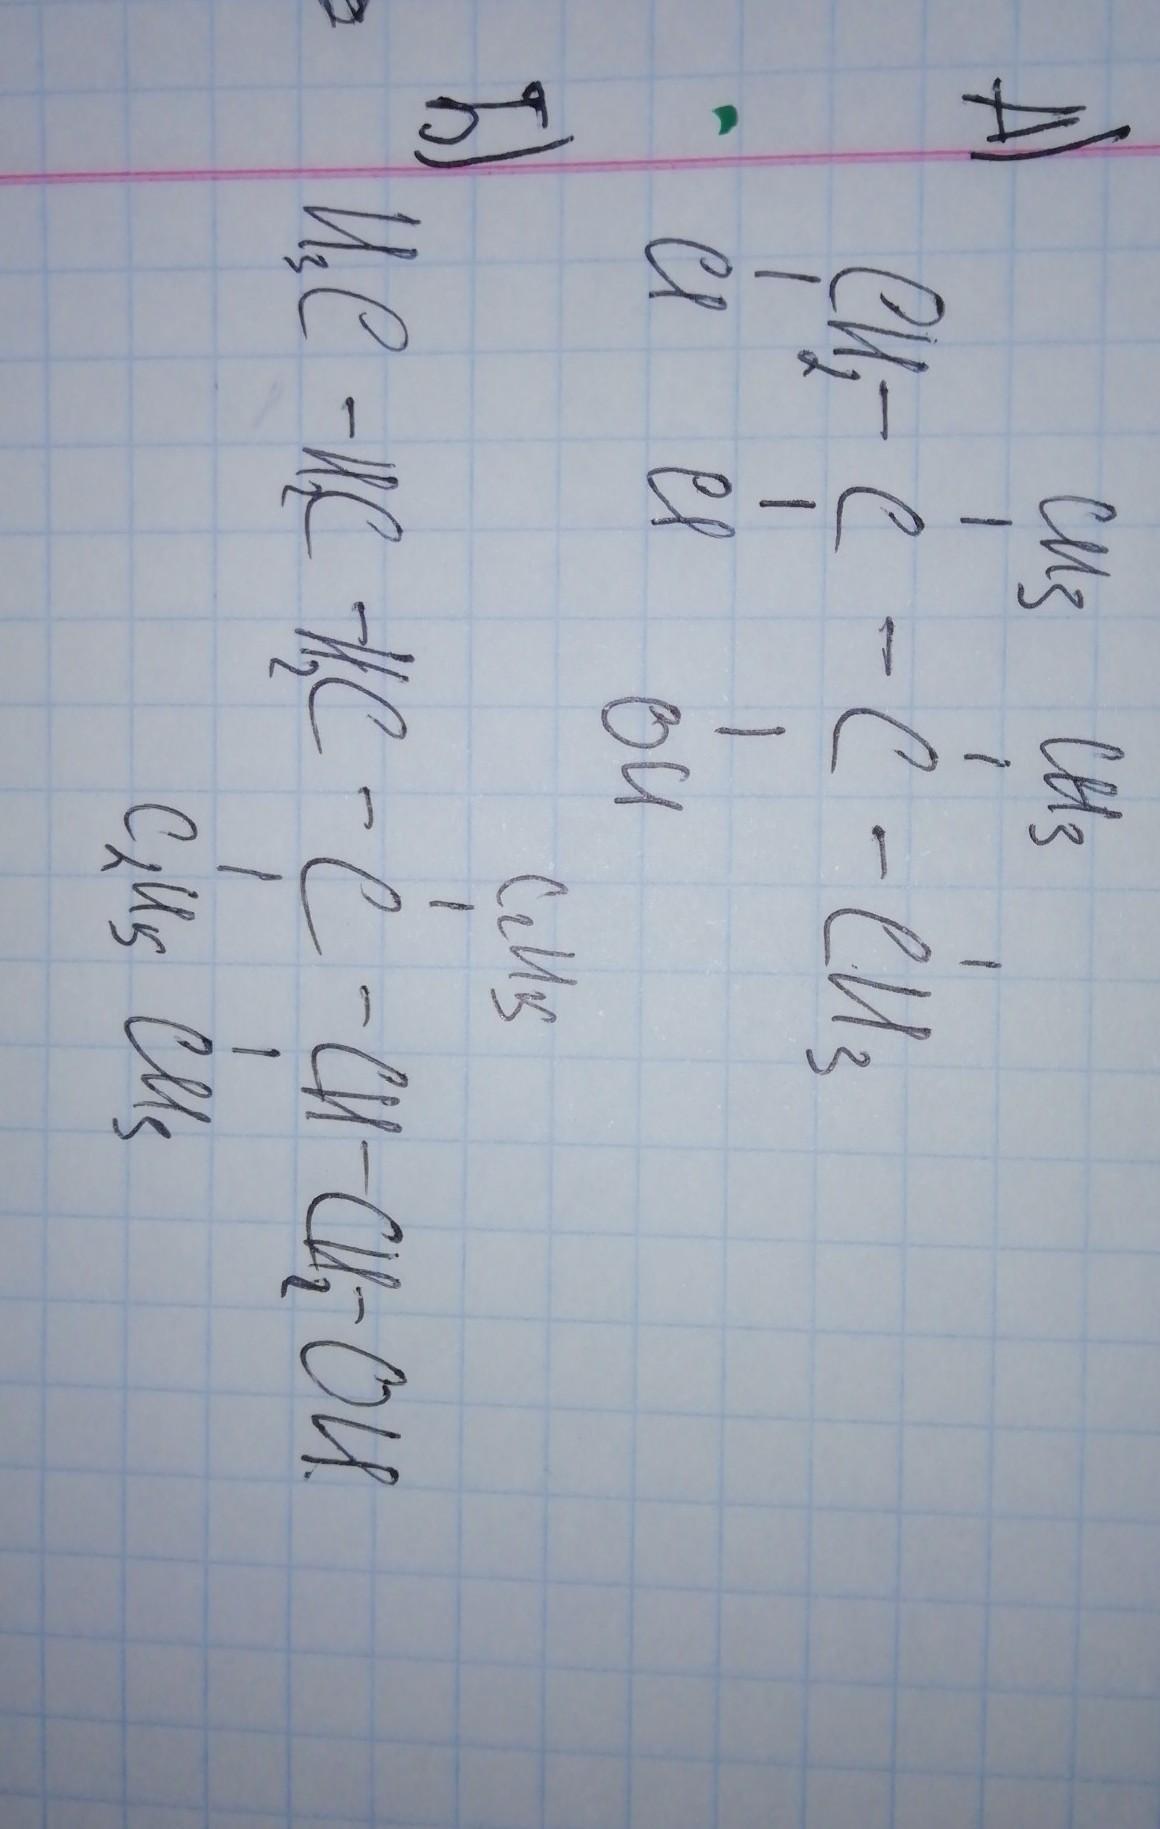 А)
CH3 CH3
CH2 - C - C - CH3
Cl Cl OH
Б)
C2H5
H3C - H2C - H2C - C - CH - CH2 - OH
C2H5 CH3